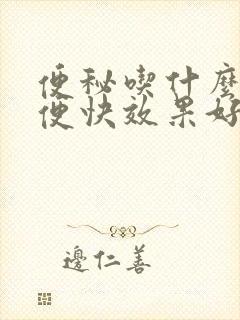 便秘喫什麼
便快效果好
邊仁善